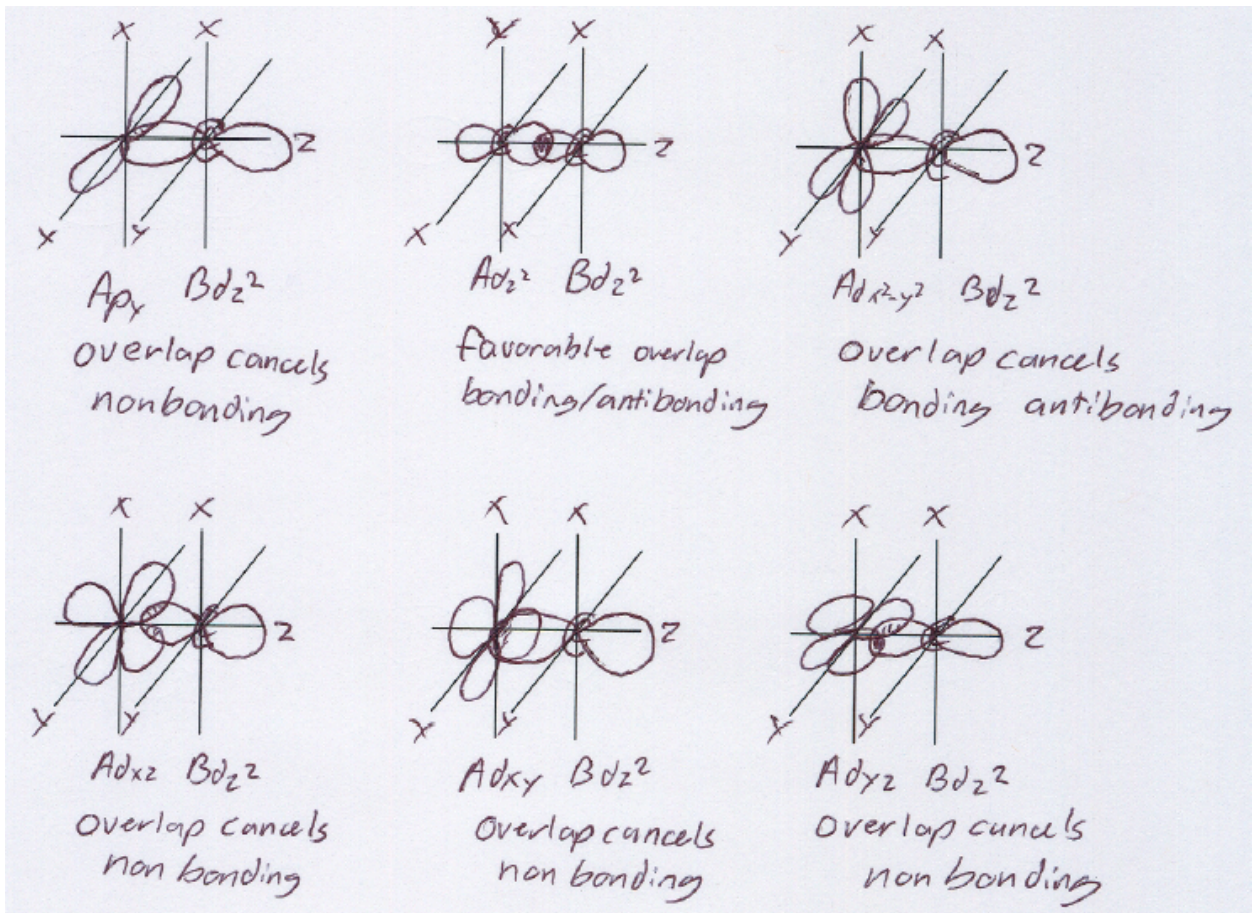 X X
Z
X Y
Apy Bdz²
overlap cancels
nonbonding
Y X
Z
X X
Adz² Bdz²
favorable overlap
bonding/antibonding
X X
Z
Y Y
Adx²-y² Bdz²
overlap cancels
bonding antibonding
X X
Z
Y Y
Adxz Bdz²
overlap cancels
non bonding
X X
Z
Y Y
Adxy Bdz²
overlap cancels
non bonding
X X
Z
Y Y
Adyz Bdz²
overlap cancels
non bonding